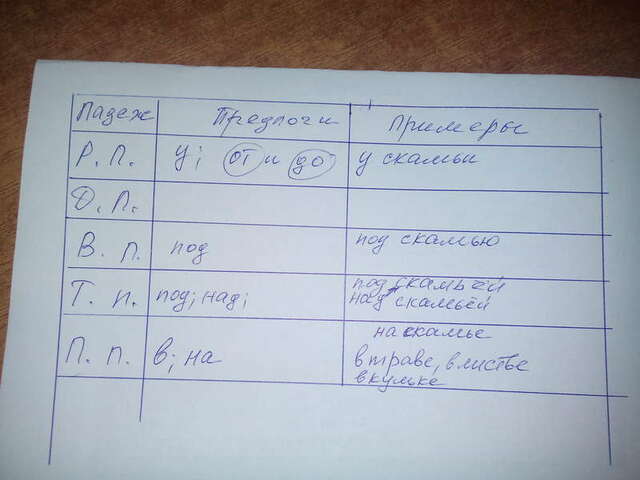 Падеж Предлоги Примеры
Р. П. у; от и до у скамьи
Д. П.
В. П. под под скамью
Т. п. под; над; под скамьёй
над скамьёй
П. п. в; на на скамье
в траве, в листве
в кульке